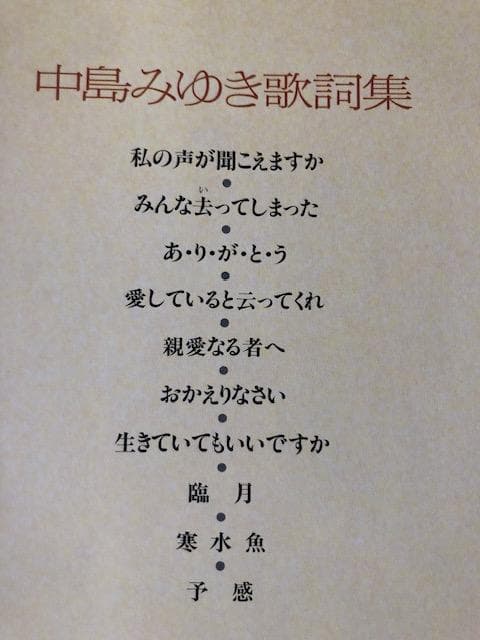 中島みゆき歌詞集
私の声が聞こえますか
い
みんな去ってしまった
あ・り・が・と・う
愛していると云ってくれ
親愛なる者へ
おかえりなさい
生きていてもいいですか
臨月
寒水魚
予感